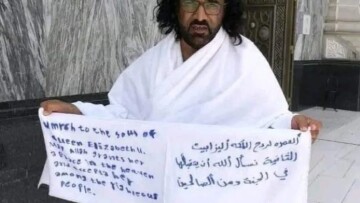 umrah to the soul of
Queen Elizabeth II.
Allah graves her
place in the heaven
her
among the righteous
people.
العمره لروح الملكه اليزابيث
الثانية نسأل الله ان يتقبلها
في الجنة ومن الصالحين